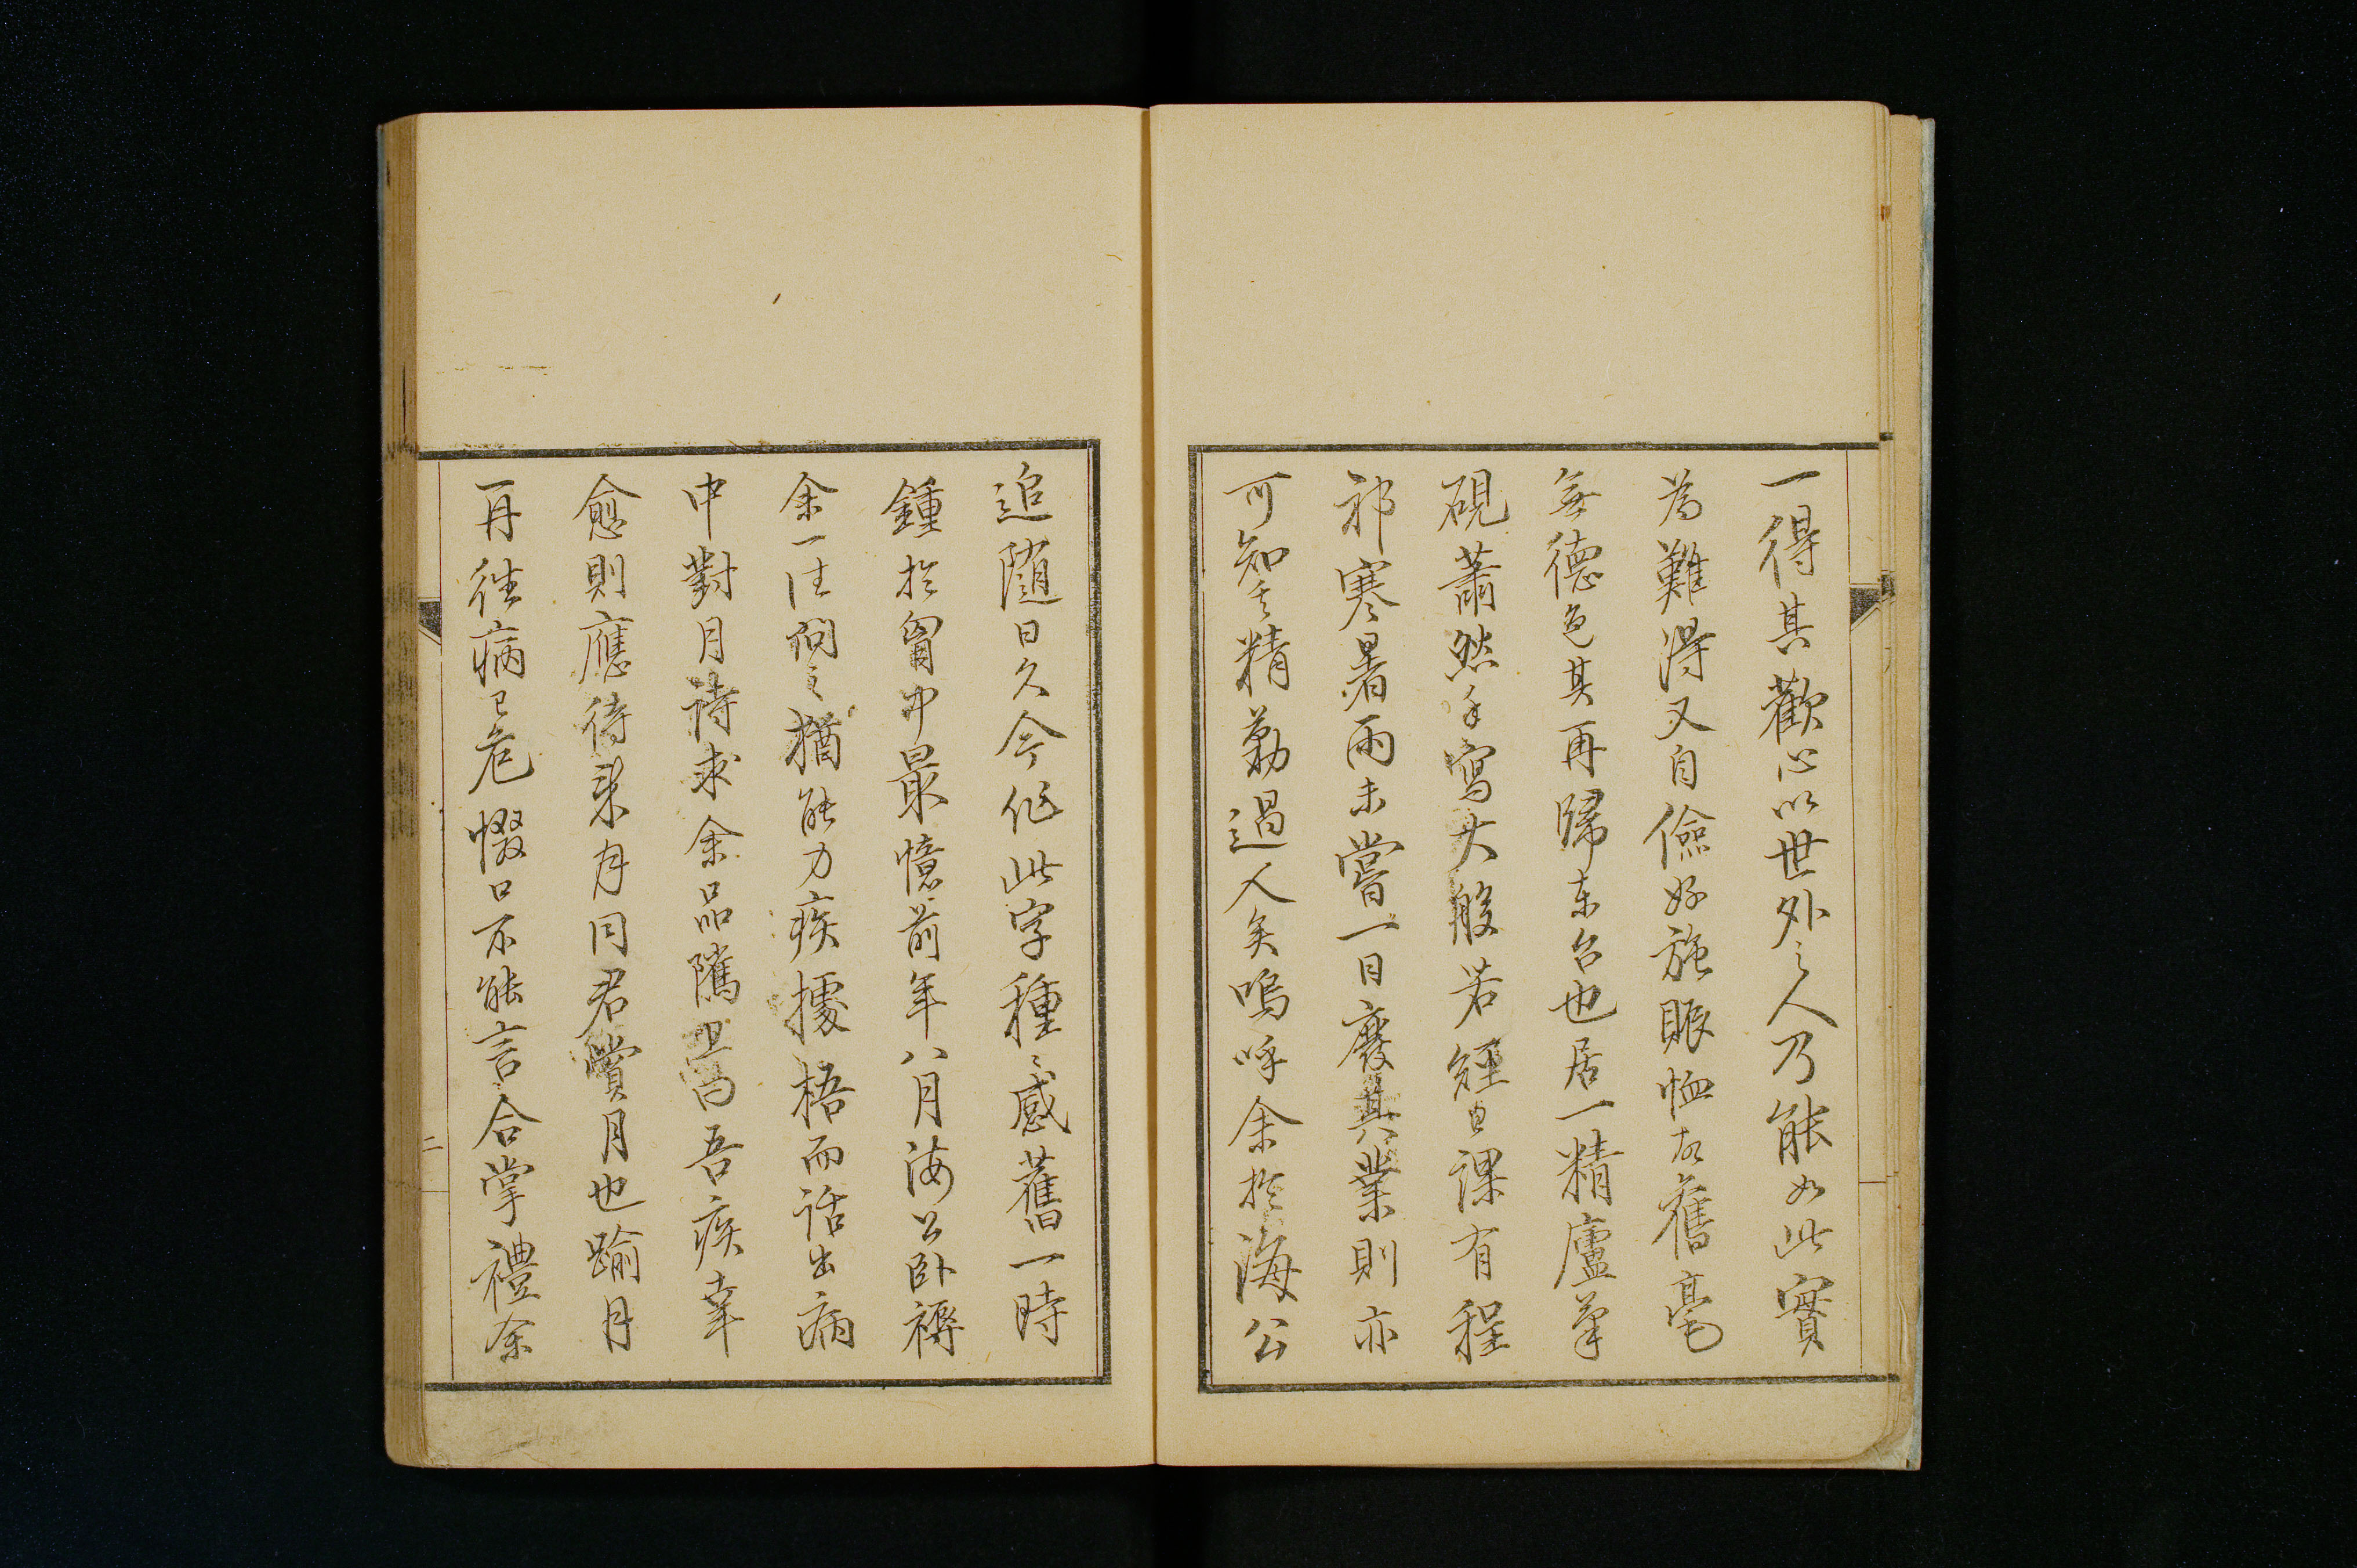 一得其歡心以世外之人乃能如此實
為難得又自儉好施賑恤故舊毫
無德色其再歸東台也居一精廬筆
硯蕭然手寫大般若經日課有程
祁寒暑雨未嘗一日廢其業則亦
可知其精勤過人矣嗚呼余於海公
追隨日久今作此字種々感舊一時
鍾於胷中最憶前年八月海公臥褥
余一往問之猶能力疾據梧而話出病
中對月詩求余品隲且曰吾疾幸
愈則應待來月同君賞月也踰月
再往病已危惙口不能言合掌禮余
二